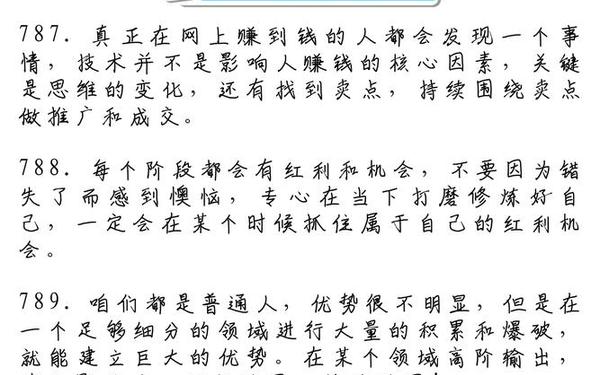 787. 真正在网上赚到钱的人都会发现一个事
情，技术并不是影响人赚钱的核心因素，关键
是思维的变化，还有找到卖点，持续围绕卖点
做推广和成交。
788. 每个阶段都会有红利和机会，不要因为错
失了而感到懊恼，专心在当下打磨修炼好自
己，一定会在某个时候抓住属于自己的红利机
会。
789. 咱们都是普通人，优势很不明显，但是在
一个足够细分的领域进行大量的积累和爆破，
就能建立巨大的优势。在某个领域高阶输出，